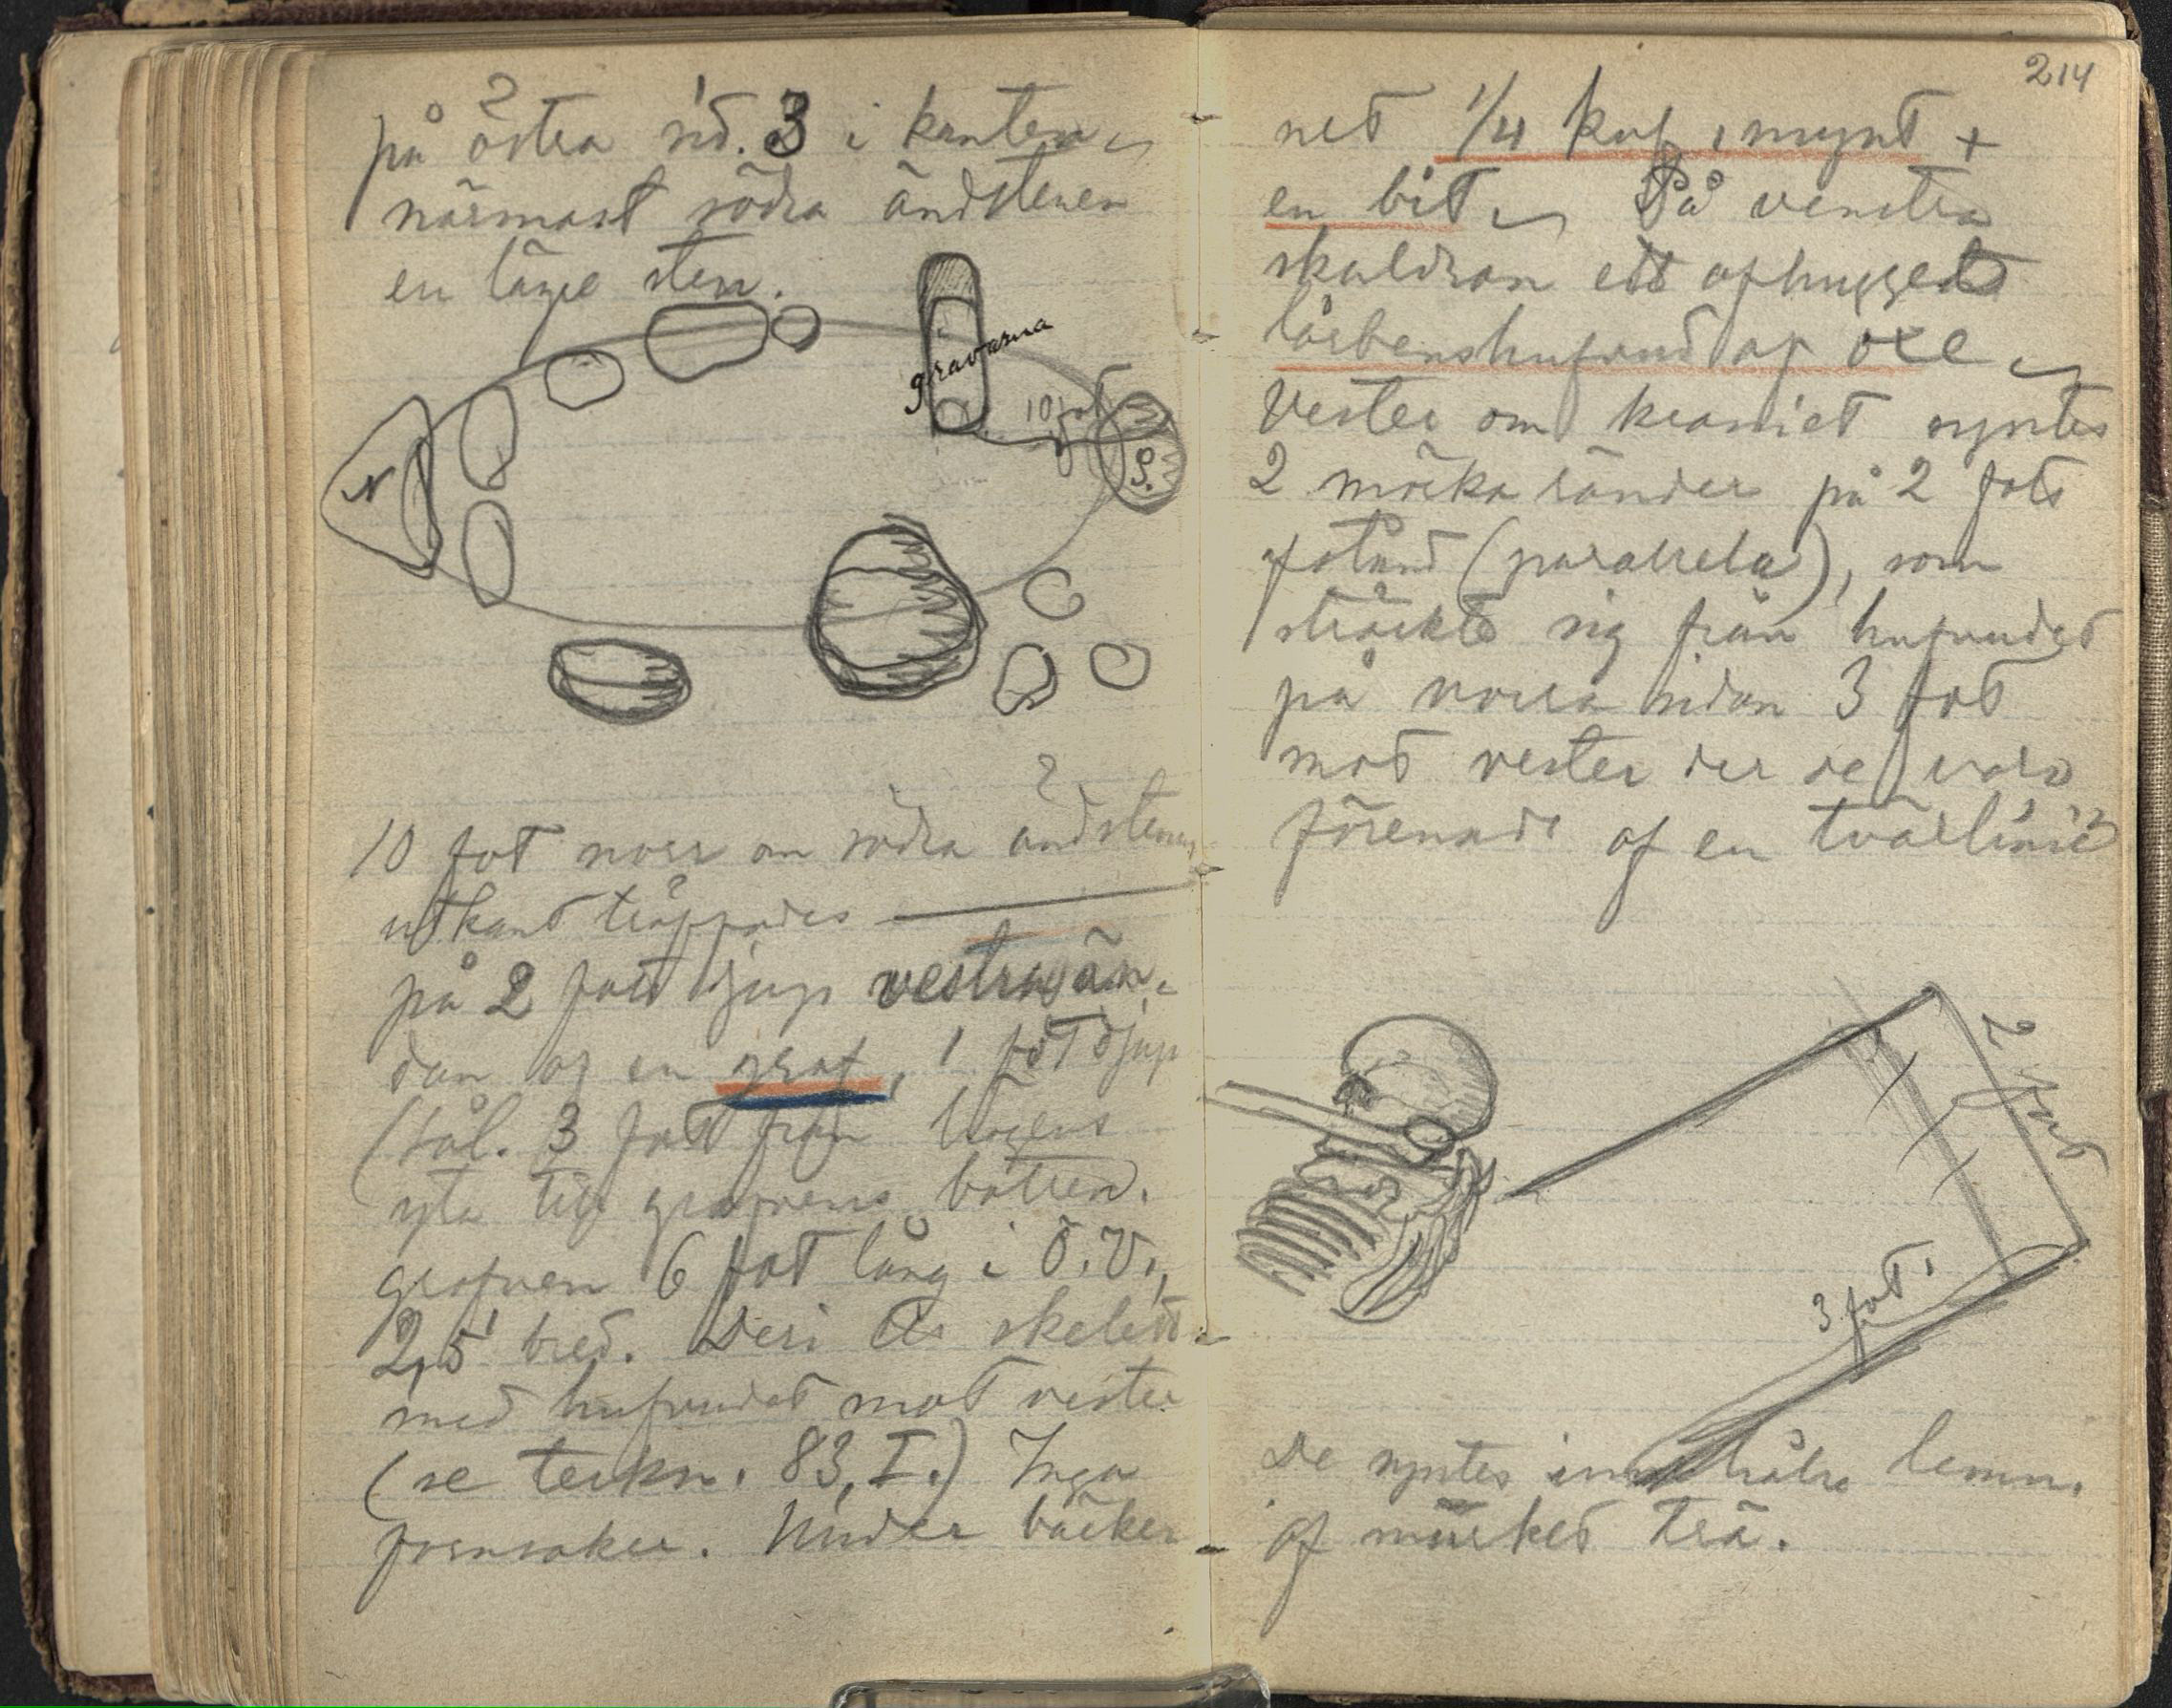 på östra sid. 3 i kanten
närmast södra ändstenen
en lägre sten.
gravarna
10 fot
N
S.
10 fot norr om södra ändstenens
utkant träffades
på 2 fots djup vestra än-
dan af en graf, 1 fot djup
(sål. 3 fot från högens
yta till grafvens botten.
grafven 6 fot lång i Ö.V.,
2,5' bred. Deri låg skelett
med hufvudet mot vester
(se teckn. 83, I.) Inga
fornsaker. Under bäcke
214
net 1/4 kuf. mynt +
en bit. På venstra
skuldran ett afhugget
lårbenshufvud af oxe
Vester om kraniet syntes
2 mörka ränder på 2 fots
afstånd (parallela), som
sträckte sig från hufvudet
på norra sidan 3 fot
mot vester der de voro
förenade af en tvärlinie
2 fot
3 fot.
De syntes innehålla lemn.
af murket trä.